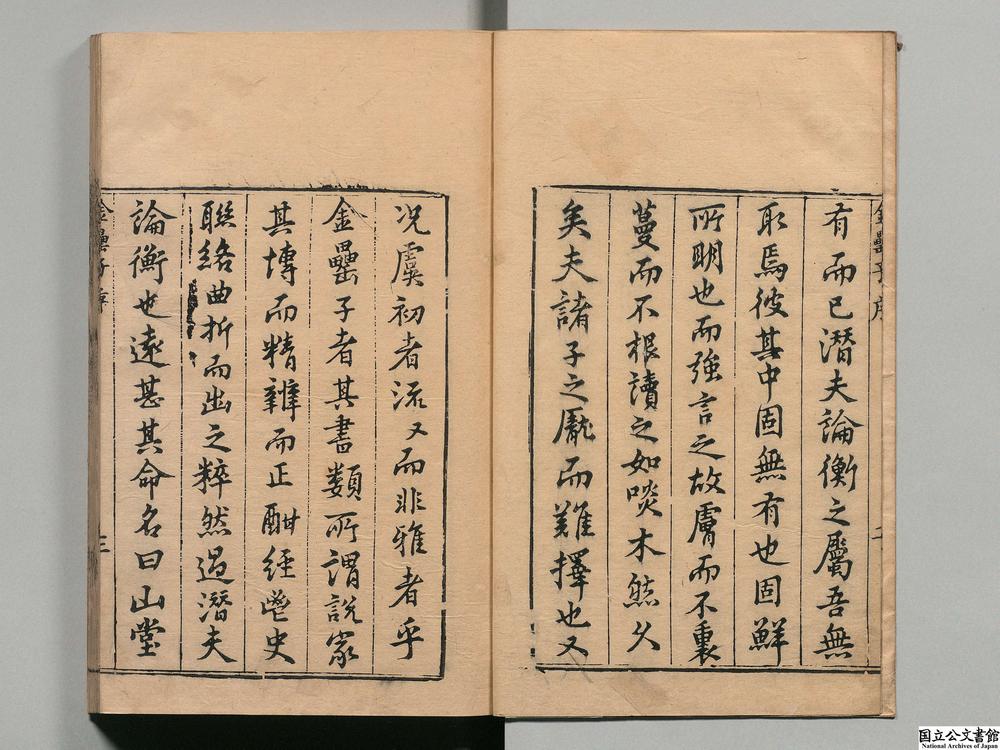 有而已潛夫論衡之屬吾無
取焉彼其中固無有也固鮮
所明也而強言之故膚而不裏
蔓而不根讀之如啖木然久
矣夫諸子之厖而難擇也又
金罍子序
二
况虞初者流又而非雅者乎
金罍子者其書類所謂說家
其博而精辯而正酣經鬯史
聯絡曲折而出之粹然過潛夫
論衡也遠甚其命名曰山堂
金罍子序
三
国立公文書館
National Archives of Japan